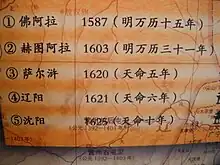 ① 佛阿拉 1587 (明万历十五年)
② 赫图阿拉 1603 (明万历三十一年)
③ 萨尔浒 1620 (天命五年)
④ 辽阳 1621 (天命六年)
⑤ 沈阳 1625 (天命十年)